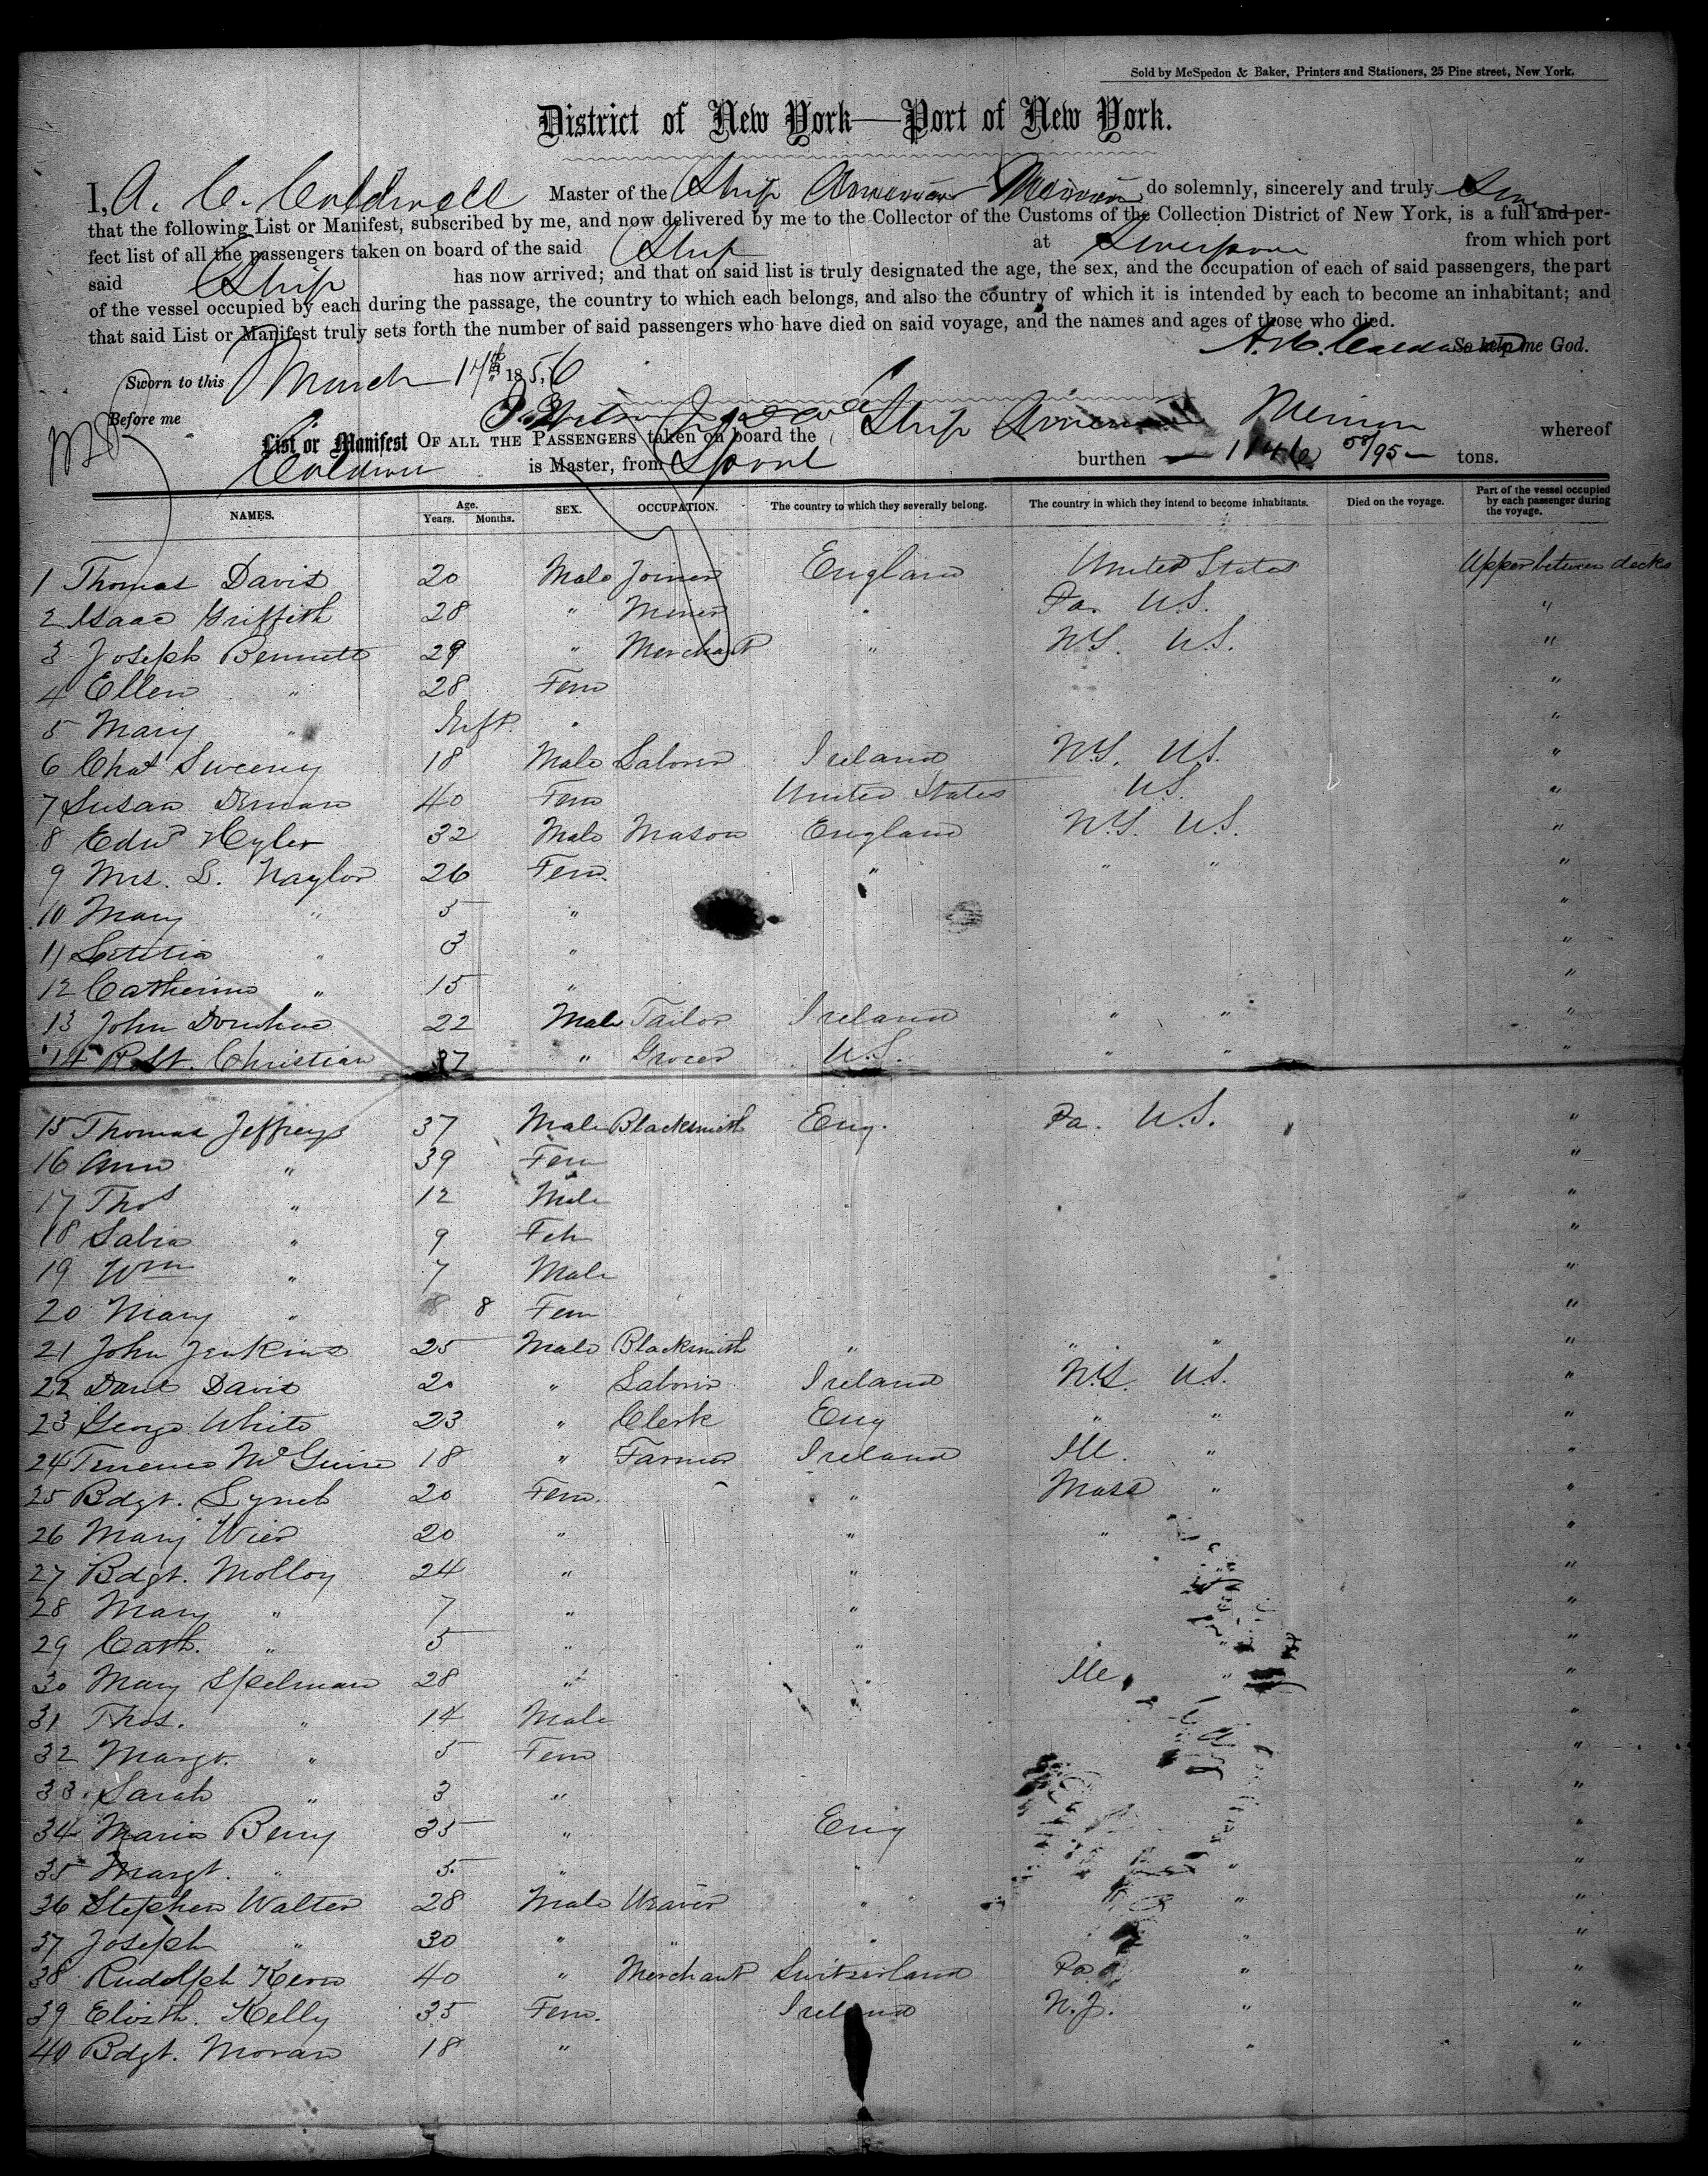 Sold by McSpedon & Baker, Printers and Stationers, 25 Pine street, New York.
District of New York—Port of New York.
I, A. C. Caldwell Master of the Ship American do solemnly, sincerely and truly
that the following List or Manifest, subscribed by me, and now delivered by me to the Collector of the Customs of the Collection District of New York, is a full and per-
fect list of all the passengers taken on board of the said Ship at Liverpool from which port
said Ship has now arrived; and that on said list is truly designated the age, the sex, and the occupation of each of said passengers, the part
of the vessel occupied by each during the passage, the country to which each belongs, and also the country of which it is intended by each to become an inhabitant; and
that said List or Manifest truly sets forth the number of said passengers who have died on said voyage, and the names and ages of those who died.
So help me God.
Sworn to this March 17th 1856
Before me
List or Manifest OF ALL THE PASSENGERS taken on board the Ship whereof
is Master, from Lpool burthen tons.
NAMES. Age. Years. Months. SEX. OCCUPATION. The country to which they severally belong. The country in which they intend to become inhabitants. Died on the voyage. Part of the vessel occupied by each passenger during the voyage.
1 Thomas Davis 20 Male Joiner England United States Upper between decks
2 Isaac Griffith 28 " Miner " Pa. U.S. "
3 Joseph Bennett 29 " Merchant " N.Y. U.S. "
4 Ellen " 28 Fem "
5 Mary " Inft. " "
6 Chas Sweeny 18 Male Laborer Ireland N.Y. U.S. "
7 Susan 40 Fem United States U.S. "
8 Edwd Hyler 32 Male Mason England N.Y. U.S. "
9 Mrs. S. Naylor 26 Fem. " " " "
10 Mary " 5 " "
11 Letitia " 3 " "
12 Catherine " 15 " "
13 John Donohue 22 Male Tailor Ireland " " "
14 Robt. Christian 37 " Grocer U.S. " " "
15 Thomas Jeffreys 37 Male Blacksmith Eng. Pa. U.S. "
16 Ann " 39 Fem "
17 Thos " 12 Male "
18 Sabia " 9 Fem "
19 Wm " 7 Male "
20 Mary " 8 Fem "
21 John Jenkins 25 Male Blacksmith " " " "
22 Danl Davis 20 " Laborer Ireland N.Y. U.S. "
23 George White 23 " Clerk Eng " " "
24 Terrence McGuire 18 " Farmer Ireland Ill. " "
25 Bdgt. Lynch 20 Fem. " Mass " "
26 Mary Wier 20 " " " "
27 Bdgt. Molloy 24 " " "
28 Mary " 7 " " "
29 Cath. " 5 " " "
30 Mary Spelman 28 " " Ill. " "
31 Thos. " 14 Male "
32 Margt. " 5 Fem "
33 Sarah " 3 " "
34 Maria Berry 35 " Eng "
35 Margt. " 5 " " " "
36 Stephen Walter 28 Male Weaver " " "
37 Joseph " 30 " " " " "
38 Rudolph Kern 40 " Merchant Switzerland Pa " "
39 Elizth. Kelly 35 Fem. Ireland N.J. " "
40 Bdgt. Moran 18 " " "